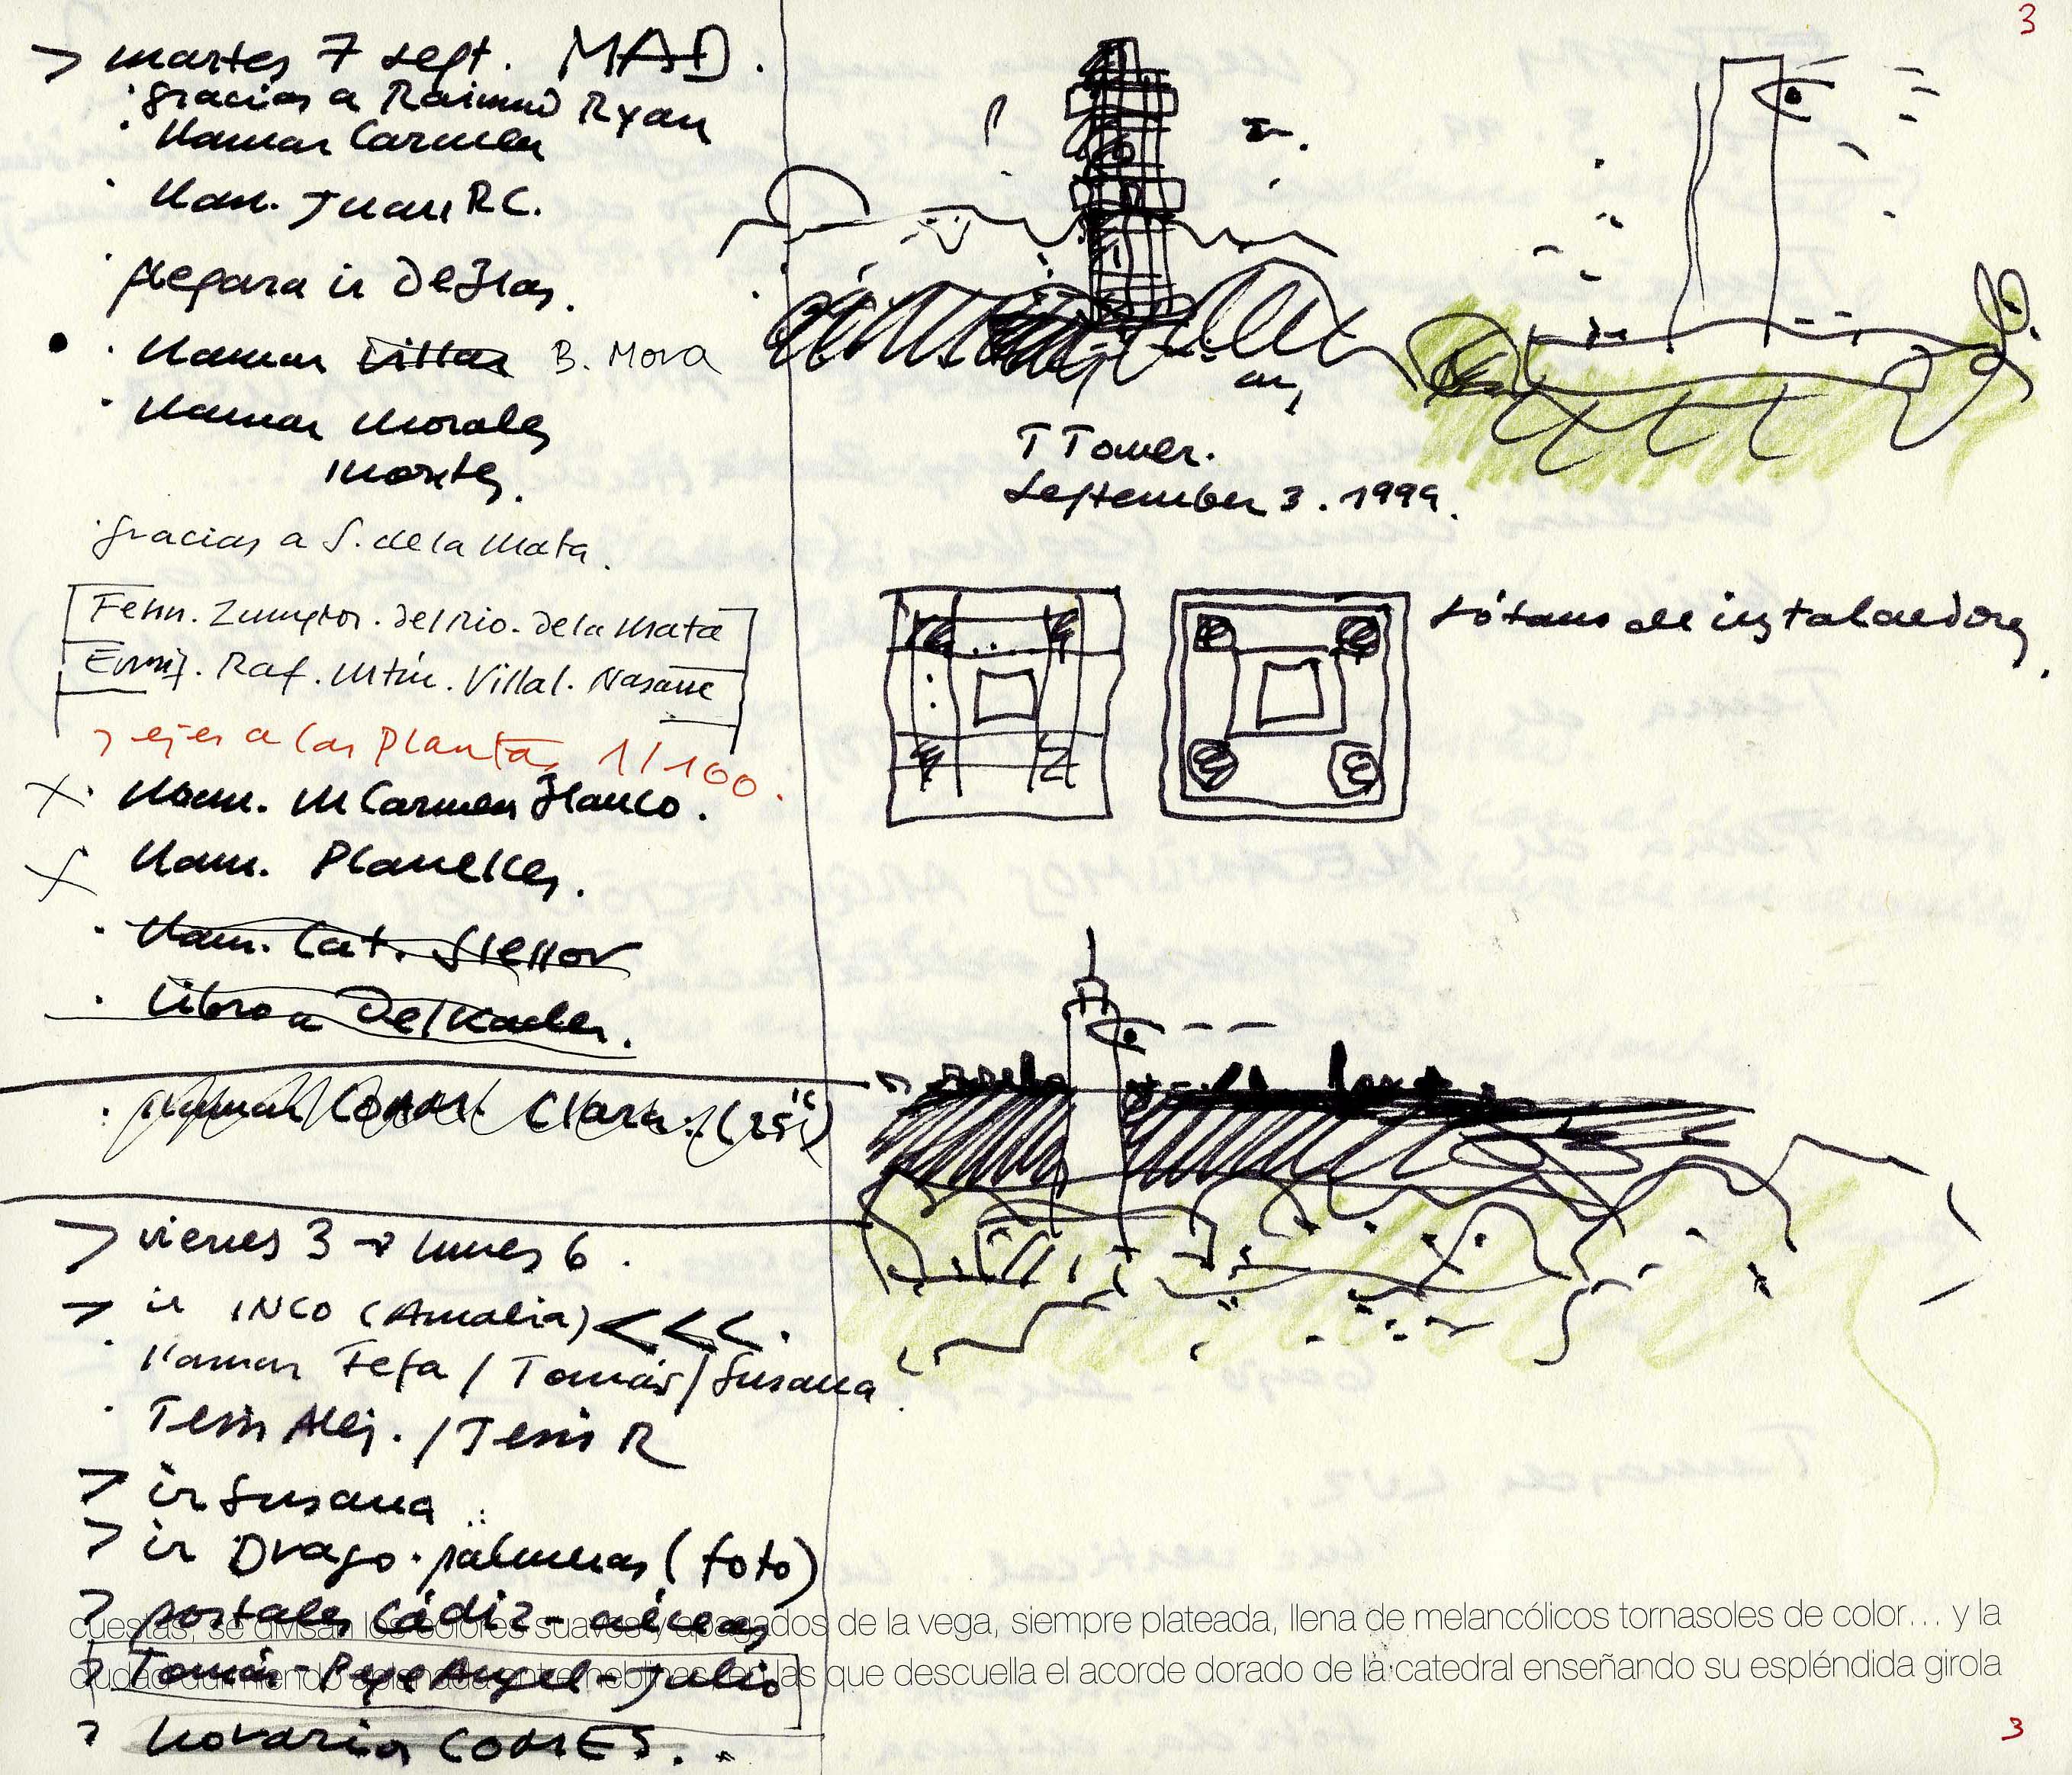 3
> martes 7 sept. MAD.
· gracias a Raimund Ryan
· llamar Carmen
· llam. Juan RC.
· llamar Villar B. Mora
· llamar Morales
Montes.
· gracias a S. de la Mata.
Fehn. Zumptor. del Rio. De la Mata
Raf. Mtin. Villal. Navarre
> ejes a las Plantas 1/100.
x · llam. M Carmen Blanco.
x llam. Planelles.
· llam. Cat.
· Libro a Delkader.
· llamar Clara.
> viernes 3 → lunes 6.
> ir INCO (Amalia) <<<.
· llamar Fefa / Tomás / Susana
· Tesis Alej. / Tesis R
> ir Susana
> ir Drago · palmeras (foto)
> postales Cádiz - aéreas
> Tomás - Pepe Angel - Julio
> horarios COMES.
T Tower.
September 3. 1999.
sótano de instalaciones.
de la vega, siempre plateada, llena de melancólicos tornasoles de color... y la
que descuella el acorde dorado de la catedral enseñando su espléndida girola
3